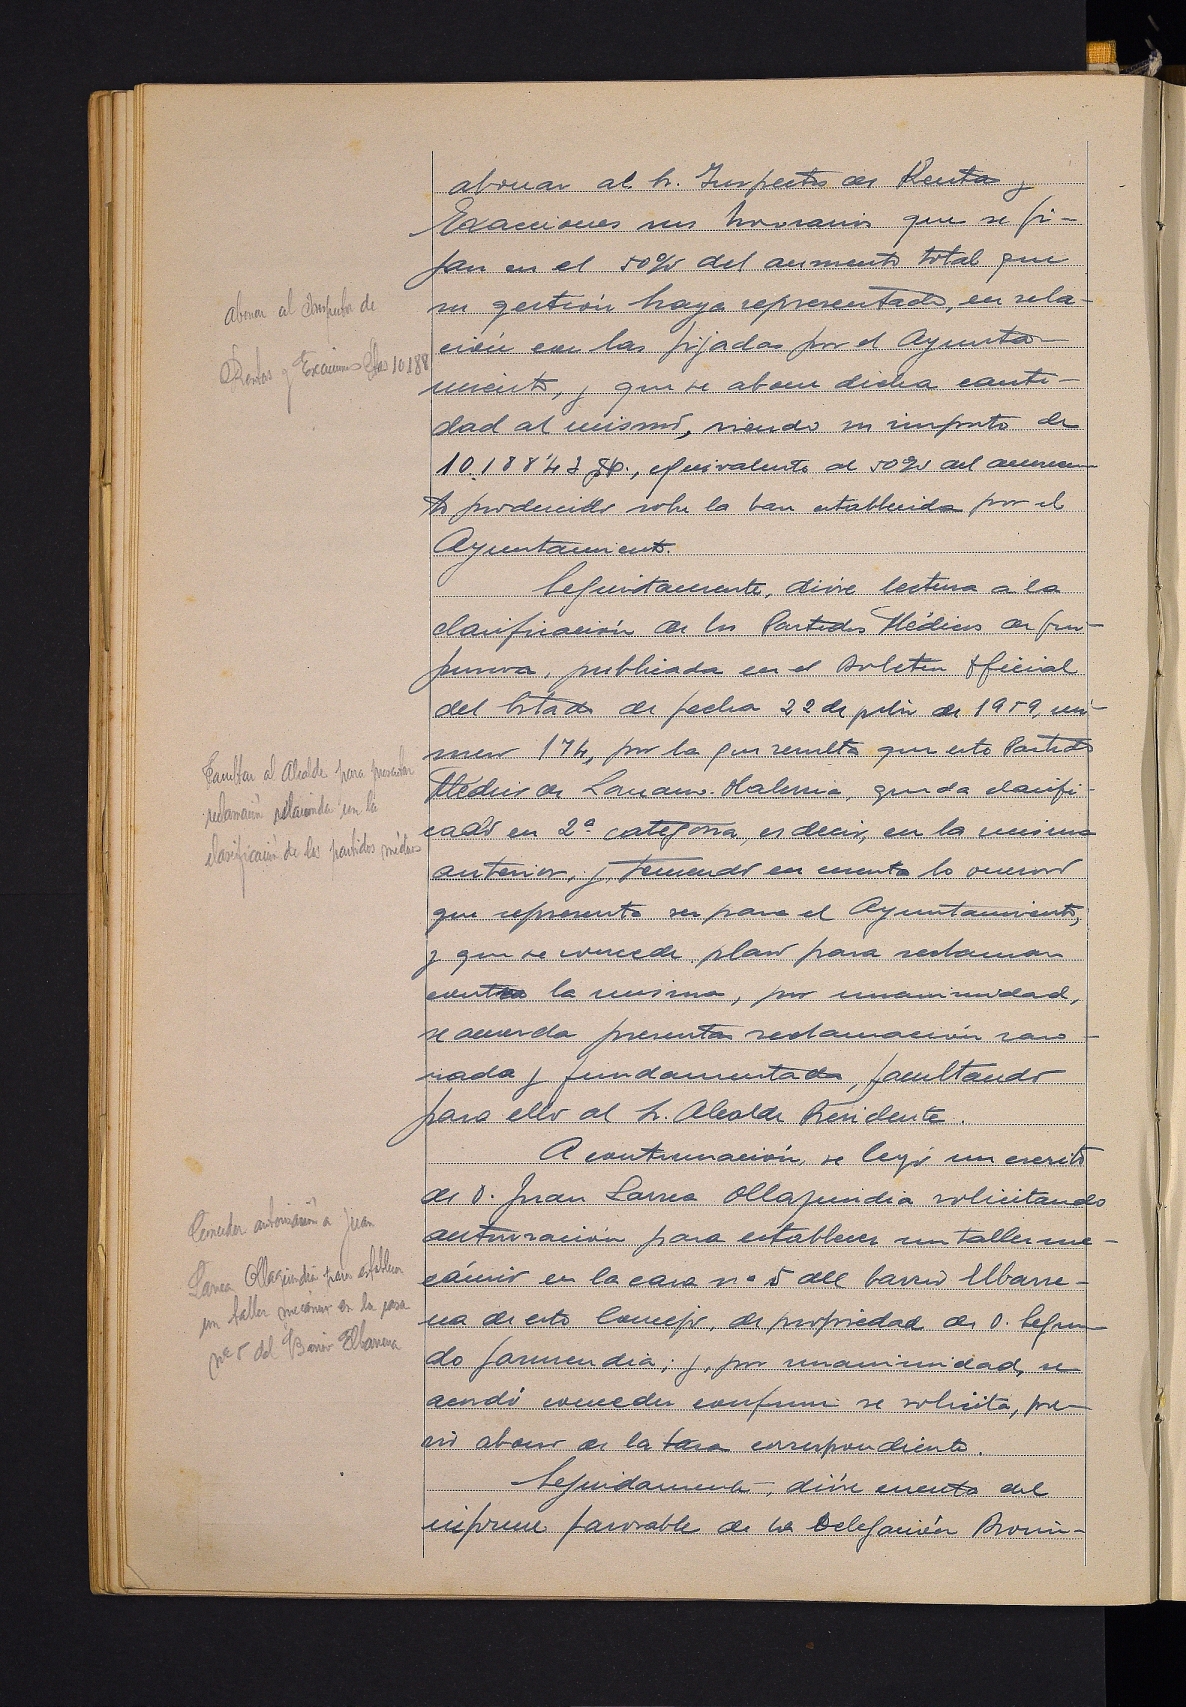 abonar al Sr. Inspector de Rentas y
Exacciones sus honorarios que se fi-
jan en el 50% del aumento total que
su gestión haya representado, en rela-
ción con las fijadas por el Ayunta-
miento, y que se abone dicha canti-
dad al mismo, siendo su importe de
10.188'43 pts., equivalente al 50% del aumen-
to producido sobre la base establecida por el
Ayuntamiento.
Seguidamente, dióse lectura a la
clasificación de los Partidos Médicos de Gui-
púzcoa, publicada en el Boletín Oficial
del Estado de fecha 22 de julio de 1959, nú-
mero 174, por la que resulta que este Partido
Médico de Lezama-
quda clasifi-
cado en 2ª categoría, es decir, en la misma
anterior, y, teniendo en cuenta lo oneroso
que representa ser para el Ayuntamiento,
y que se concede plazo para reclamar
contra la misma, por unanimidad,
se acuerda presentar reclamación razo-
nada y fundamentada, facultando
para ello al Sr. Alcalde Presidente.
A continuación, se leyó un escrito
de D. Juan Larrea Ollaquindia solicitando
autorización para establecer un taller me-
cánico en la casa nº 5 del barrio Elbarre-
na de este Concejo, de propiedad de D. Segun-
do Garmendia; y, por unanimidad, se
acordó conceder conforme se solicita, pre-
vio abono de la tasa correspondiente.
Seguidamente, dióse cuenta del
informe favorable de la Delegación Provin-
Abonar al Inspector de
Rentas y Exacciones Ptas 10.188
Facultar al Alcalde para presentar
reclamación relacionada con la
clasificación de los partidos médicos
Conceder autorización a Juan
Larrea Ollaquindia para establecer
un taller mecánico en la casa
nº 5 del Barrio Elbarrena